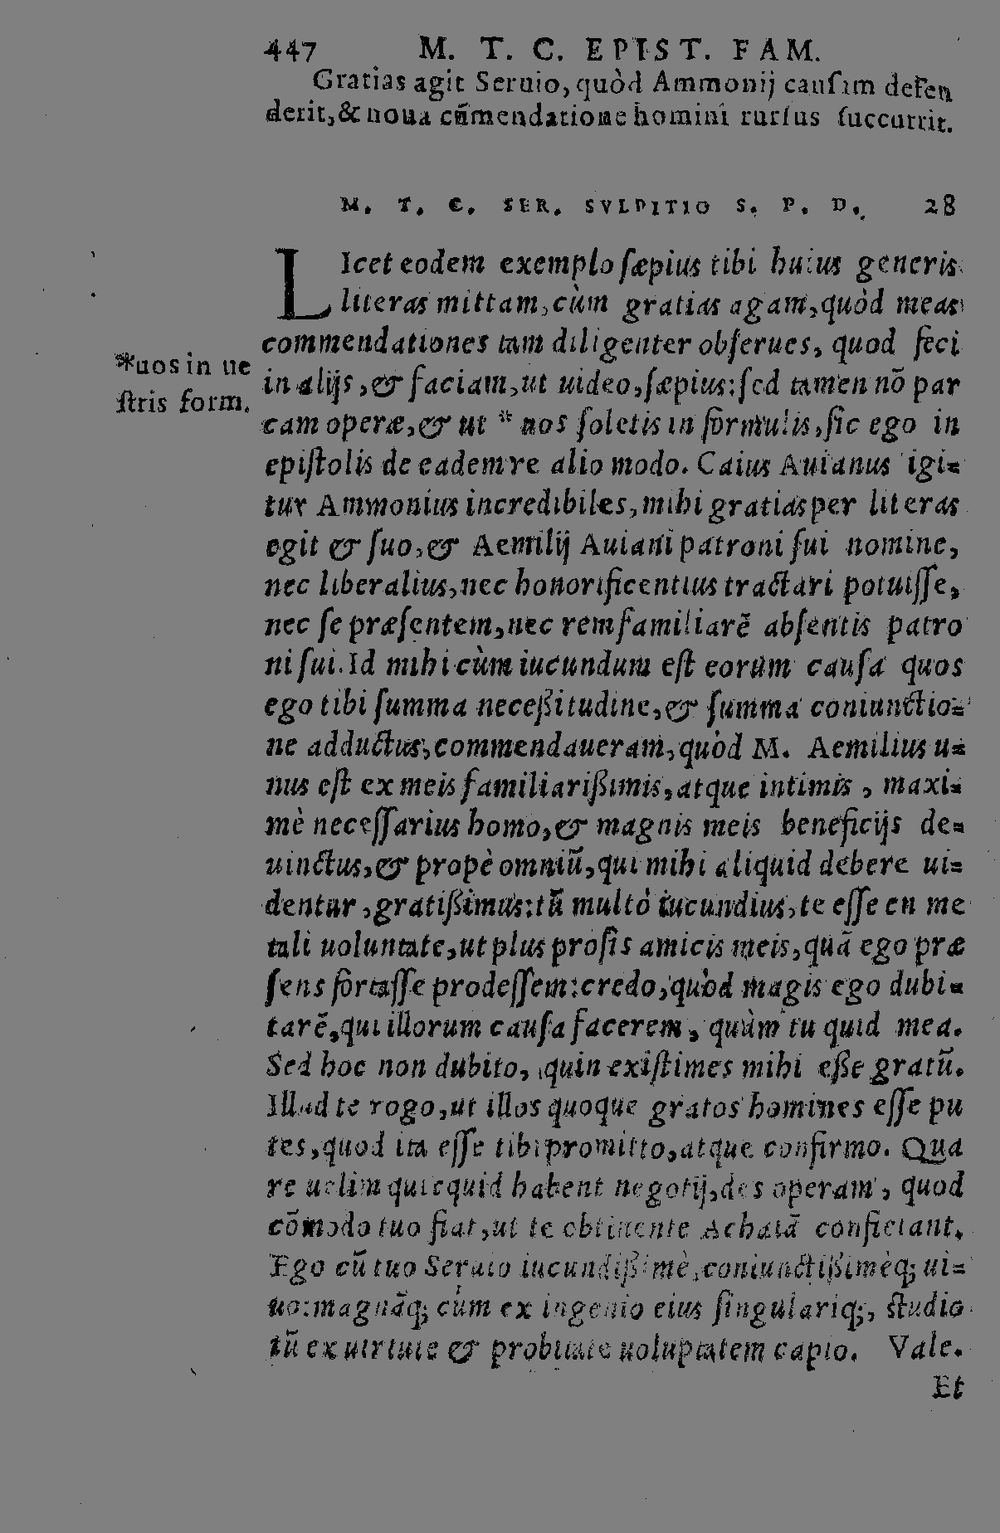 447 M. T. C. EPIST. FAM.
Gratias agit Seruio, quòd Ammonij causam defen
derit, & noua cũmendatione homini rursus succurrit.
M. T. C. SER. SVLPITIO S. P. D. 28
LIcet eodem exemplo sæpius tibi huius generis
literas mittam, cùm gratias agam, quòd meas
commendationes tam diligenter obserues, quod feci
in alijs, & faciam, ut uideo, sæpius: sed tamen nõ par
*uos in ue
stris form.
cam operæ, & ut * nos soletis in formulis, sic ego in
epistolis de eadem re alio modo. Caius Auianus igi=
tur Ammonius incredibiles, mihi gratias per literas
egit & suo, & Aemilij Auiani patroni sui nomine,
nec liberalius, nec honorificentius tractari potuisse,
nec se præsentem, nec rem familiarẽ absentis patro
ni sui. Id mihi cùm iucundum est eorum causa quos
ego tibi summa neceßitudine, & summa coniunctio=
ne adductus, commendaueram, quòd M. Aemilius u=
nus est ex meis familiarißimis, atque intimis, maxi=
mè necessarius homo, & magnis meis beneficijs de=
uinctus, & propè omniũ, qui mihi aliquid debere ui=
dentur, gratißimus: tũ multò iucundius, te esse en me
tali uoluntate, ut plus prosis amicis meis, quã ego præ
sens fortasse prodessem: credo, quòd magis ego dubi=
tarẽ, qui illorum causa facerem, quàm tu quid mea.
Sed hoc non dubito, quin existimes mihi eße gratũ.
Illud te rogo, ut illos quoque gratos homines esse pu
tes, quod ita esse tibi promitto, atque confirmo. Qua
re uelim quicquid habent negotij, des operam, quod
cõmodo tuo fiat, ut te obtinente Achaiã conficiant.
Ego cũ tuo Seruio iucundißimè, coniunctißimeq; ui=
uo: magnãq; cùm ex ingenio eius singulariq;, studio
tũ ex uirtute & probitate uoluptatem capio. Vale.
Et